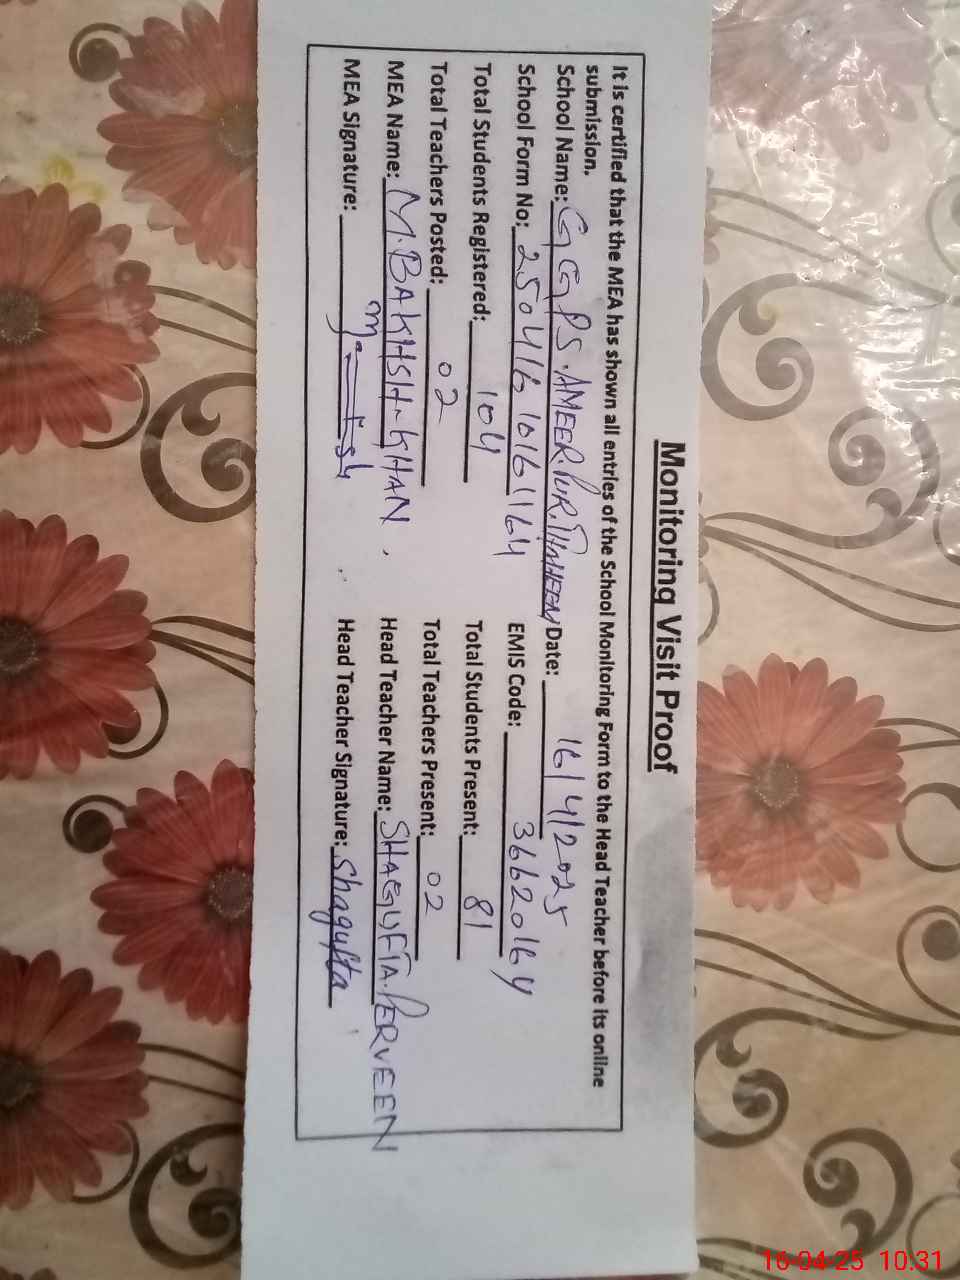 Monitoring Visit Proof
It is certified that the MEA has shown all entries of the School Monitoring Form to the Head Teacher before its online
submission.
School Name: GGPS. AMEER. PUR. Date: 16/4/2025
School Form No: 2504161016 1164 EMIS Code: 36620164
Total Students Registered: 104 Total Students Present: 81
Total Teachers Posted: 02 Total Teachers Present: 02
MEA Name: M. BAKHSH. KHAN. Head Teacher Name: SHAGUFTA. PERVEEN
MEA Signature: Head Teacher Signature: Shagufta
16-04-25 10:31